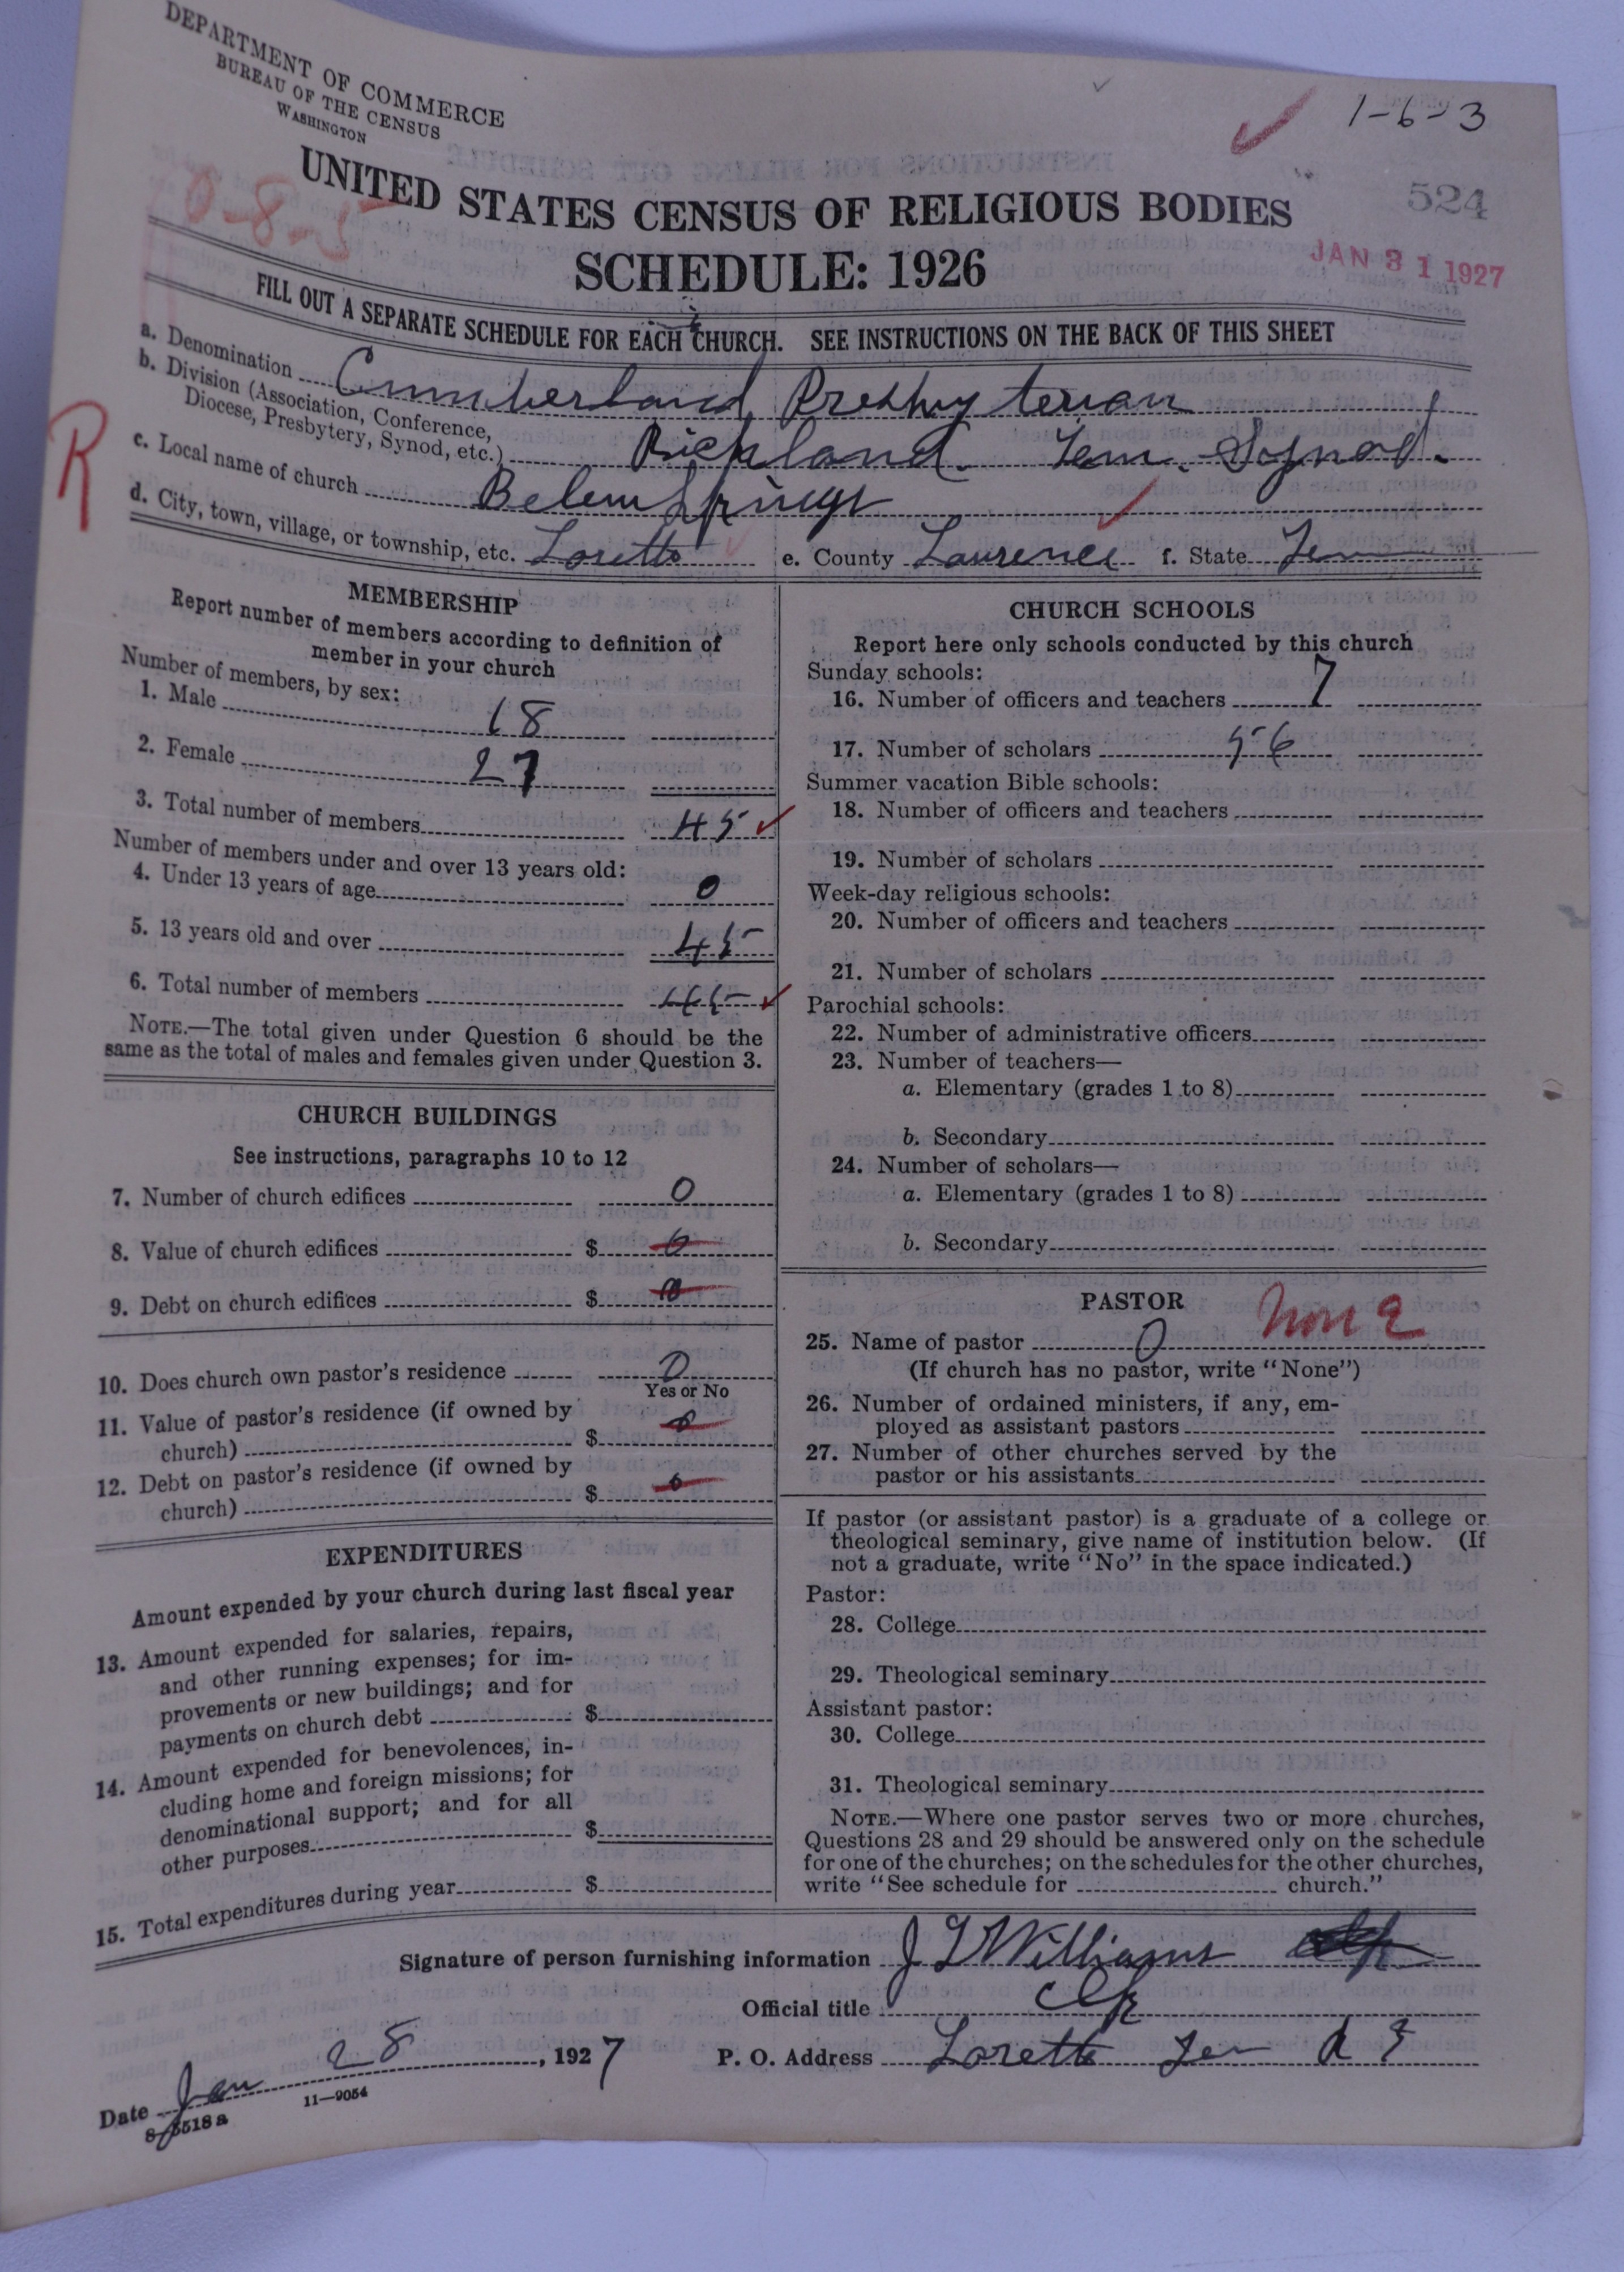 DEPARTMENT OF COMMERCE
BUREAU OF THE CENSUS
WASHINGTON
1-6-3
UNITED STATES CENSUS OF RELIGIOUS BODIES
524
SCHEDULE: 1926
JAN 31 1927
FILL OUT A SEPARATE SCHEDULE FOR EACH CHURCH. SEE INSTRUCTIONS ON THE BACK OF THIS SHEET
a. Denomination Cumberland Presbyterian
b. Division (Association, Conference,
Diocese, Presbytery, Synod, etc.) Richland. Tenn. Synod.
R
c. Local name of church Springs
d. City, town, village, or township, etc. Loretto e. County Lawrence f. State Tenn
MEMBERSHIP
Report number of members according to definition of
member in your church
Number of members, by sex:
1. Male 18
2. Female 27
3. Total number of members 45
Number of members under and over 13 years old:
4. Under 13 years of age 0
5. 13 years old and over 45
6. Total number of members 45
NOTE.—The total given under Question 6 should be the
same as the total of males and females given under Question 3.
CHURCH BUILDINGS
See instructions, paragraphs 10 to 12
7. Number of church edifices 0
8. Value of church edifices $ 0
9. Debt on church edifices $ 0
10. Does church own pastor's residence 0
Yes or No
11. Value of pastor's residence (if owned by
church) $ 0
12. Debt on pastor's residence (if owned by
church) $ 0
EXPENDITURES
Amount expended by your church during last fiscal year
13. Amount expended for salaries, repairs,
and other running expenses; for im-
provements or new buildings; and for
payments on church debt $
14. Amount expended for benevolences, in-
cluding home and foreign missions; for
denominational support; and for all
other purposes $
15. Total expenditures during year $
CHURCH SCHOOLS
Report here only schools conducted by this church
Sunday schools:
16. Number of officers and teachers 7
17. Number of scholars 56
Summer vacation Bible schools:
18. Number of officers and teachers
19. Number of scholars
Week-day religious schools:
20. Number of officers and teachers
21. Number of scholars
Parochial schools:
22. Number of administrative officers
23. Number of teachers—
a. Elementary (grades 1 to 8)
b. Secondary
24. Number of scholars—
a. Elementary (grades 1 to 8)
b. Secondary
PASTOR
25. Name of pastor 0 None
(If church has no pastor, write "None")
26. Number of ordained ministers, if any, em-
ployed as assistant pastors
27. Number of other churches served by the
pastor or his assistants
If pastor (or assistant pastor) is a graduate of a college or
theological seminary, give name of institution below. (If
not a graduate, write "No" in the space indicated.)
Pastor:
28. College
29. Theological seminary
Assistant pastor:
30. College
31. Theological seminary
NOTE.—Where one pastor serves two or more churches,
Questions 28 and 29 should be answered only on the schedule
for one of the churches; on the schedules for the other churches,
write "See schedule for church."
Signature of person furnishing information Williams
Official title Clk
Date Jan 28, 1927 P. O. Address Loretto Ten
8-5518a 11-9054